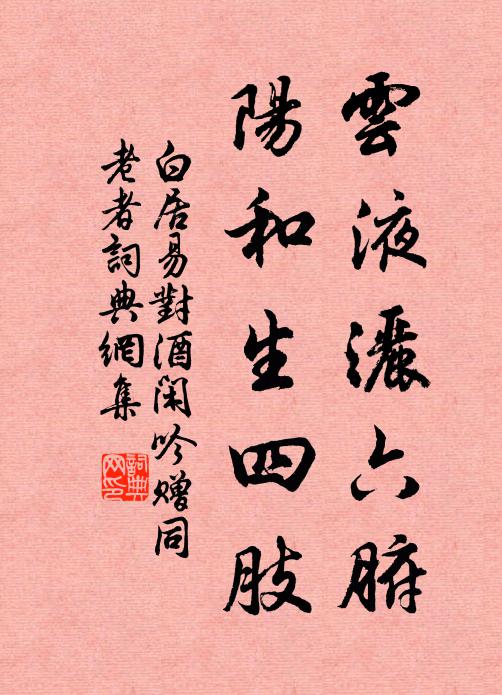 雲液灑六腑
陽和生四肢
白居易對酒閑吟贈同
老者詞典網集
詞典網印